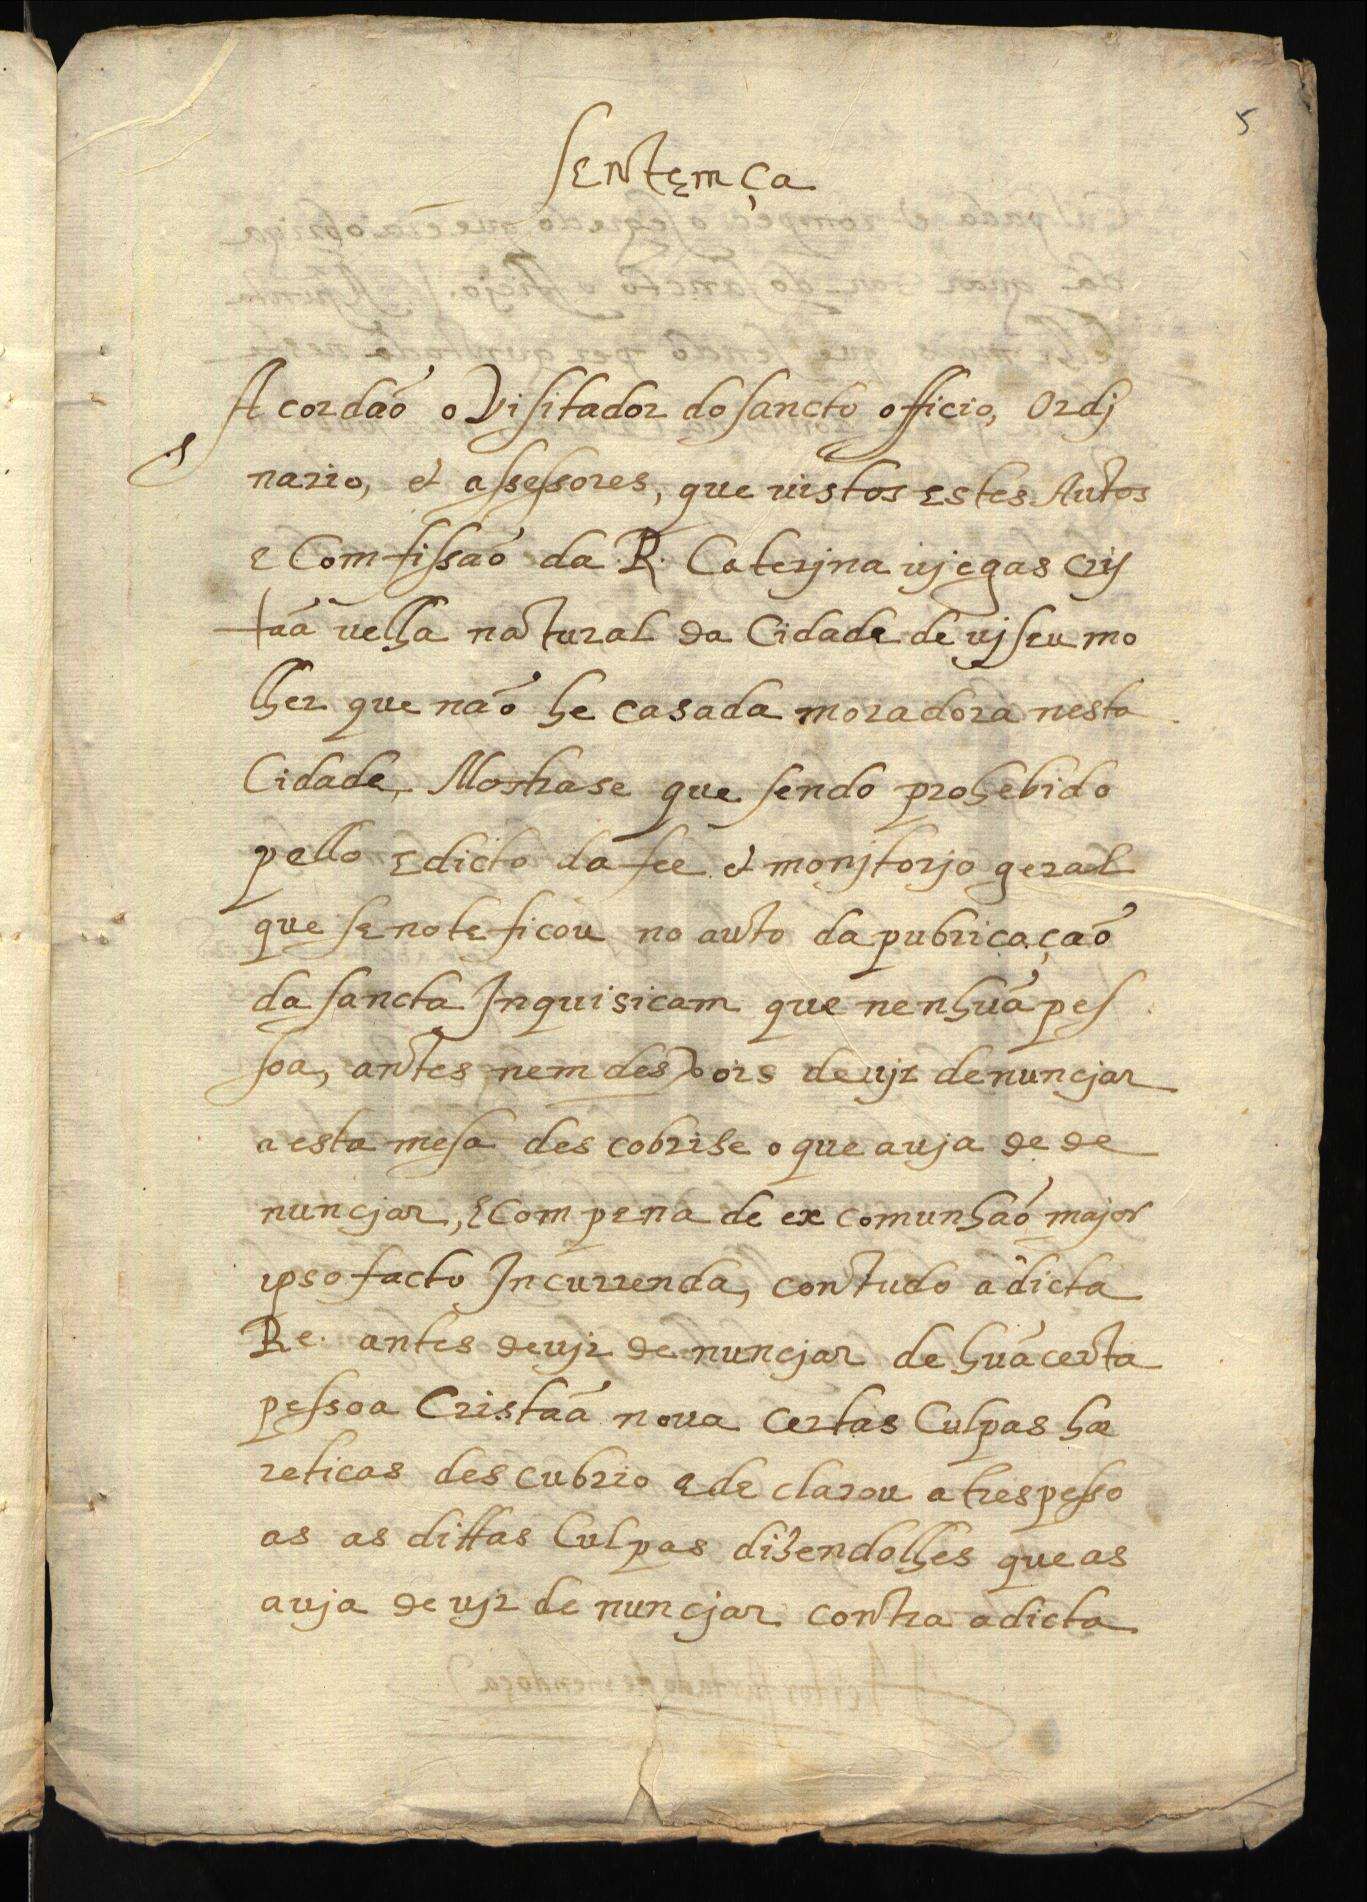 5
Sentemça
Acordaõ o Visitador do sancto officio, Ordj
nario, et assessores, que uistos estes Autos
e Comfissaõ da R. Caterjna vjegas Crjs
taã uelha natural da Cidade de vjseu mo
lher que naõ he casada moradora nesta
Cidade, Mostrase que sendo prohebido
pello edicto da fee et monjtorjo geral
que se noteficou no auto da pubricaçaõ
da sancta Inquisicam que nenhuã pes
soa, antes nem despois de vjr denuncjar
a esta mesa descobrise o que auja de de
nuncjar, e com pena de excomunhaõ major
ipso facto Incurrenda, contudo a dicta
Re. antes de vjr denuncjar de huã certa
pessoa Cristaã noua certas Culpas hæ
reticas descubrio e declarou a tres pesso
as as dittas Culpas dizendolhes que as
auja de vjr denuncjar contra a dicta